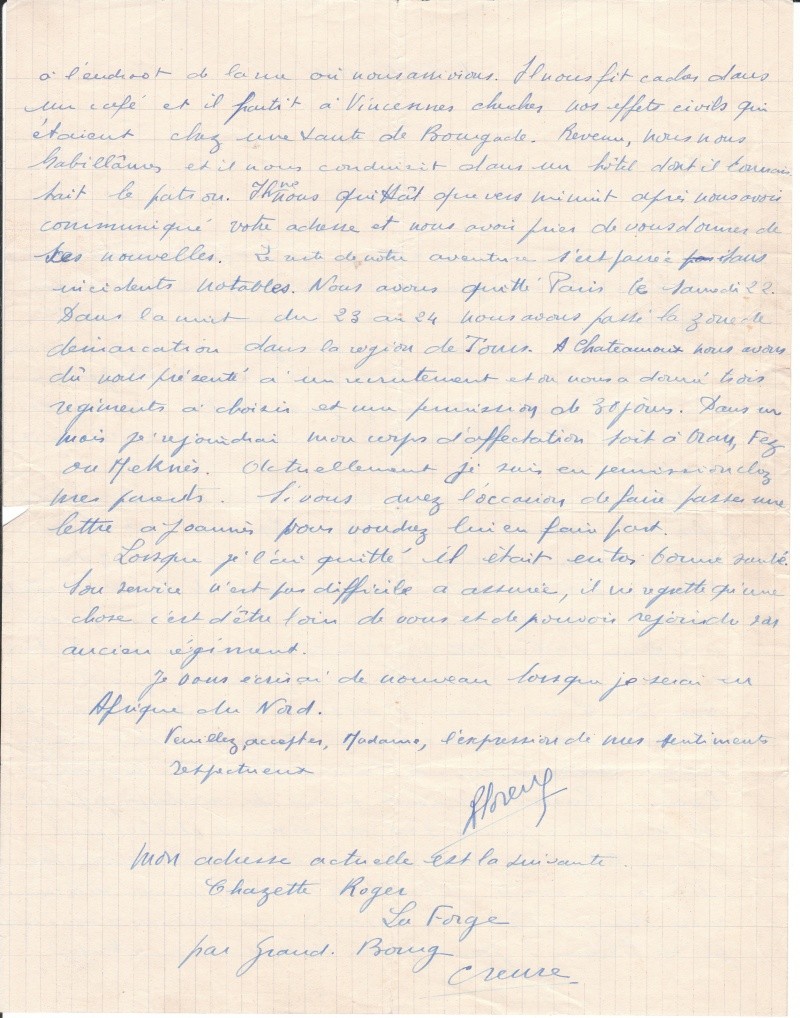 à l'endroit de la rue où nous arrivions. Il nous fit cacher dans
un café et il partit à Vincennes chercher nos effets civils qui
étaient chez une tante de Bourgade. Revenu, nous nous
habillâmes et il nous conduisit dans un hôtel dont il connais
sait le patron. Il ne nous quittât que vers minuit après nous avoir
communiqué votre adresse et nous avoir prier de vous donner de
ses nouvelles. Le reste de notre aventure s'est passée sans
incidents notables. Nous avons quitté Paris le samedi 22.
Dans la nuit du 23 au 24 nous avons passé la zone de
démarcation dans la région de Tours. A Chateauroux nous avons
dû nous présenté à un recrutement et on nous a donné trois
regiments à choisir et une permission de 30 jours. Dans un
mois je rejoindrai mon corps d'affectation soit à Oran, Fez
ou Meknès. Actuellement je suis en permission chez
mes parents. Si vous avez l'occasion de faire passer une
lettre a Joannès vous voudrez lui en faire part.
Lorsque je l'ai quitté il était en très bonne santé.
Son service n'est pas difficile a assurée, il ne regrette qu'une
chose c'est d'être loin de vous et de pouvoir rejoindre son
ancien régiment.
Je vous écrirai de nouveau lorsque je serai en
Afrique du Nord.
Veuillez accepter, Madame, l'expression de mes sentiments
respectueux
Mon adresse actuelle est la suivante.
Chazette Roger
La Forge
par Grand. Bourg
Creuse.